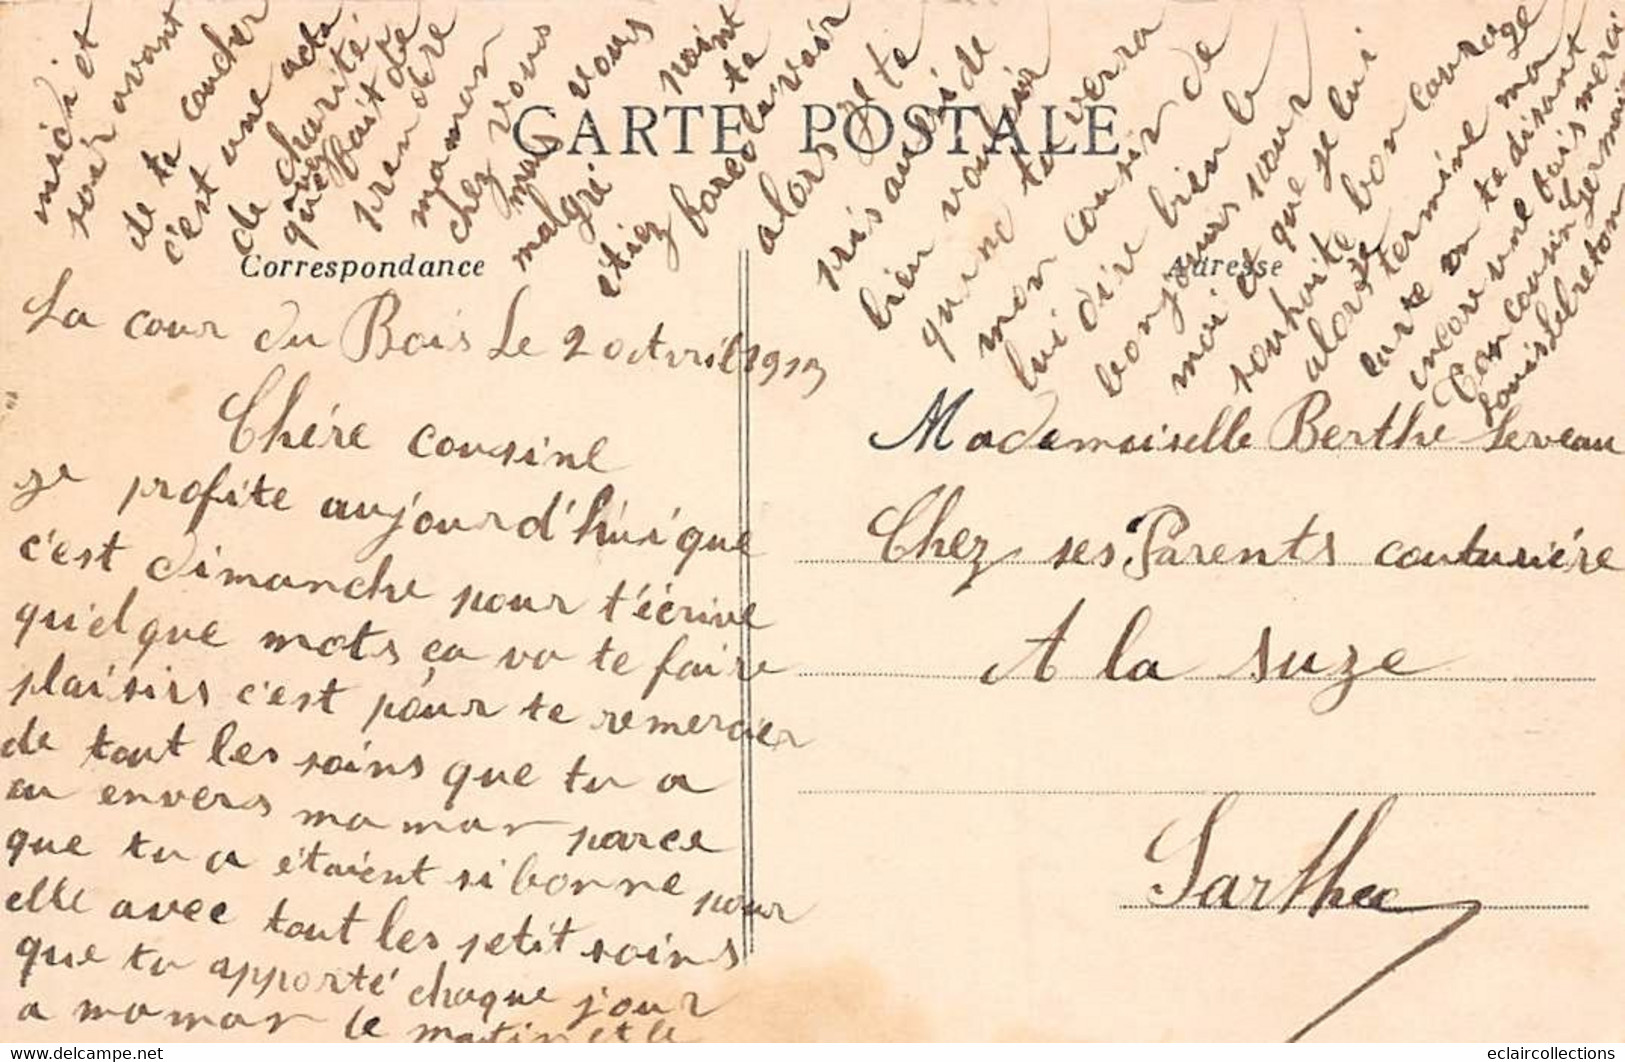 CARTE POSTALE
Correspondance
Adresse
La cour du Bois Le 2 Avril 1913
Chére cousine
je profite aujourd'hui que
c'est dimanche pour t'écrive
quelque mots ça va te faire
plaisirs c'est pour te remercier
de tout les soins que tu a
eu envers maman parce
que tu a étaient si bonne pour
elle avec tout les petit soins
que tu apporté chaque jour
a maman le matin et le
midi et
soir avant
de te coucher
c'est une acte
de charité
que fait de
prendre
maman
chez vous
mais vous
malgré point
étiez forcé ta
alors à voir
pris au vide
bien vouloir
quinc tu verra
mon cousin de
lui dire bien le
bonjours pour
moi et que je lui
souhaite bon courage
alors je termine ma
carte en te disant
encore une fois merci
Ton cousin Germain
Louis Lebreton
Mademoiselle Berthe Leveau
Chez ses Parents couturiére
A la suze
Sarthe
eclaircollections